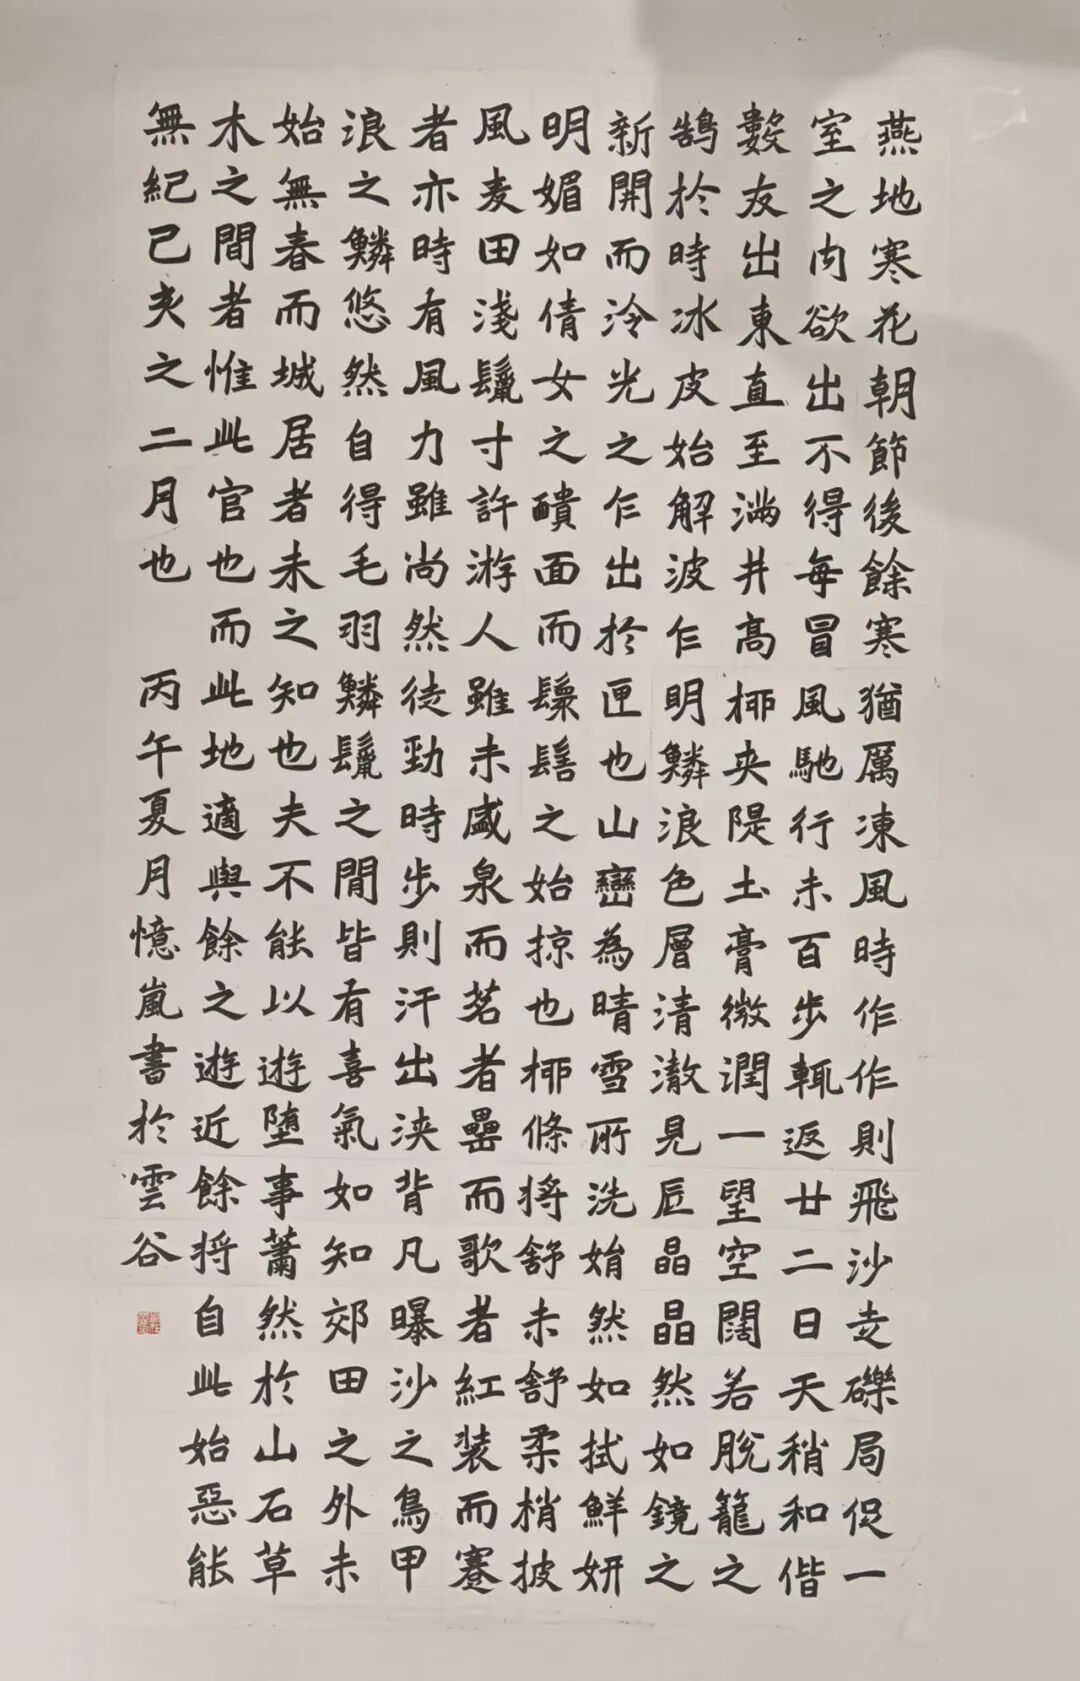 燕地寒花朝節後餘寒猶厲凍風時作作則飛沙走礫局促一
室之内欲出不得每冒風馳行未百步輒返廿二日天稍和偕
數友出東直至满井高栁夾隄土膏微潤一望空闊若脫籠之
鵠於時冰皮始解波乍明鱗浪色層清澈見底晶晶然如鏡之
新開而冷光之乍出於匣也山巒為晴雪所洗娟然如拭鮮妍
明媚如倩女之靧面而鬟髻之始掠也栁條將舒未舒柔梢披
風麦田淺鬣寸許游人雖未盛泉而茗者罍而歌者紅装而蹇
者亦時有風力雖尚然徒勁時步則汗出浹背凡曝沙之鳥甲
浪之鱗悠然自得毛羽鱗鬣之間皆有喜氣如知郊田之外未
始無春而城居者未之知也夫不能以遊堕事蕭然於山石草
木之間者惟此官也而此地適與餘之遊近餘将自此始惡能
無紀己亥之二月也 丙午夏月憶嵐書於雲谷